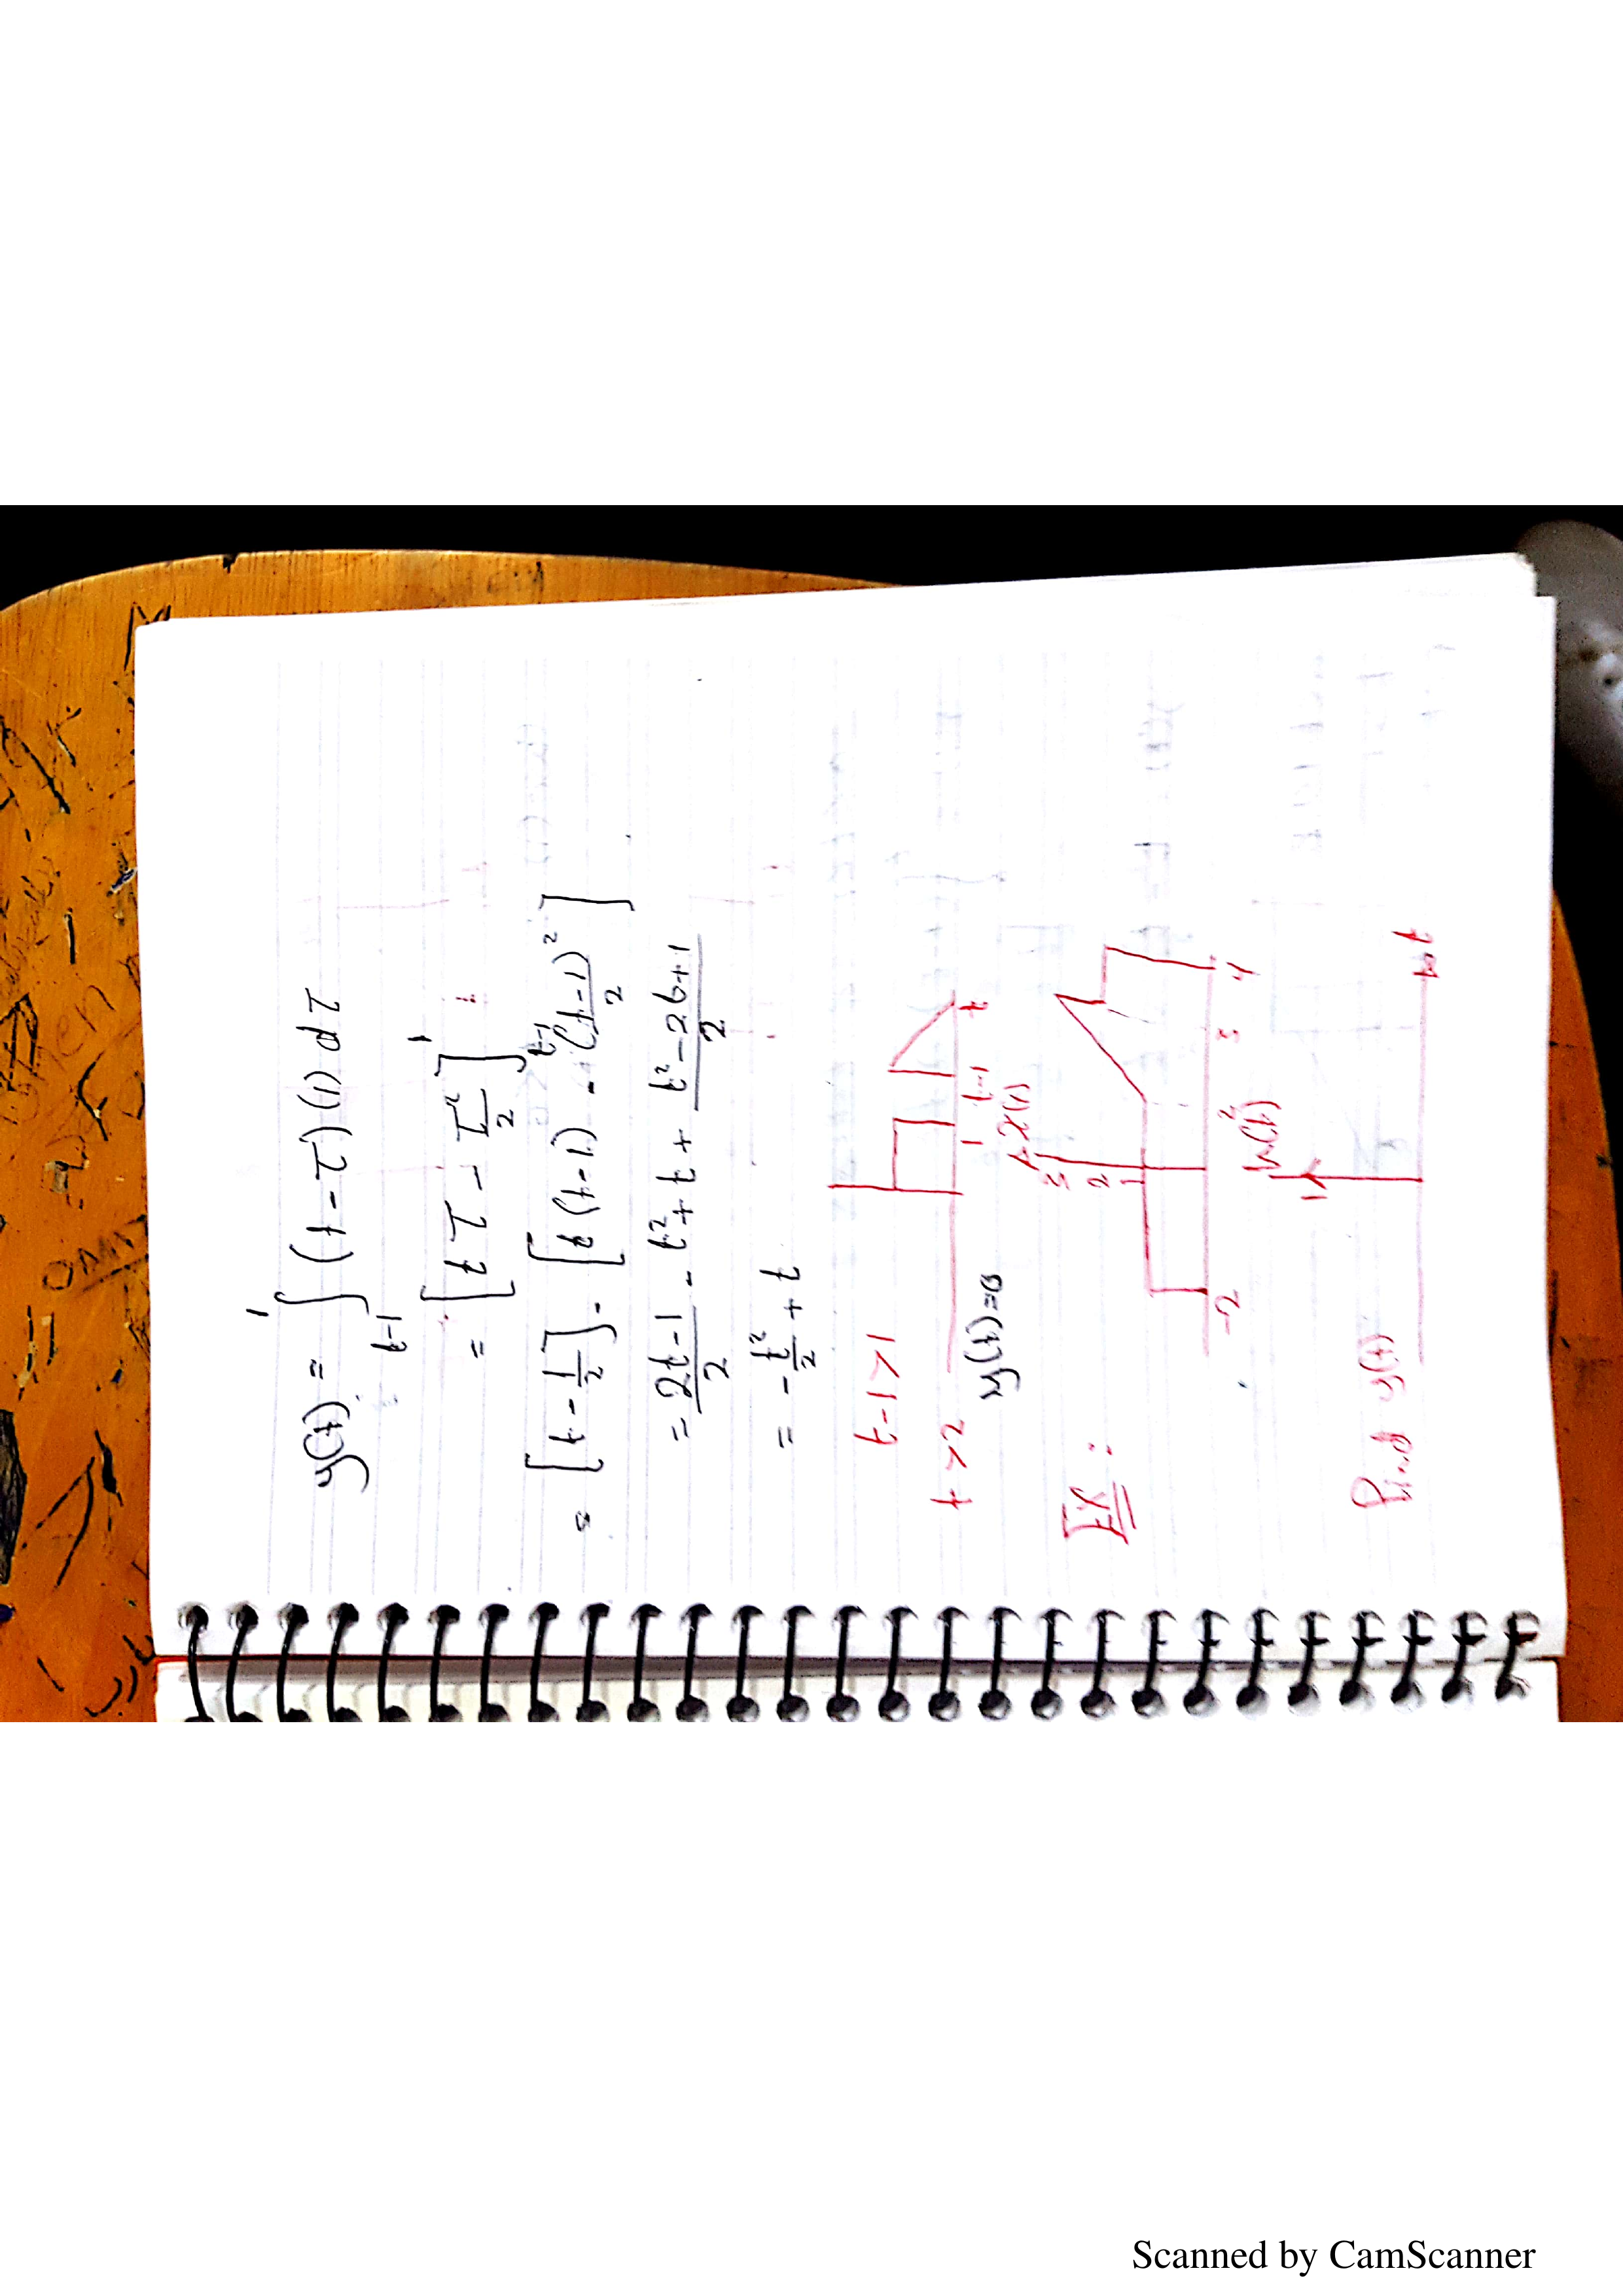 y(t) = ∫_{t-1}^{1} (t - τ)(1) dτ
= [t τ - τ²/2]_{t-1}^{1}
= [t - 1/2] - [t(t-1) - (t-1)²/2]
= (2t-1)/2 - t² + t + (t² - 2t + 1)/2
= -t²/2 + t
t-1 > 1
t > 2
1 t-1 t
y(t) = 0
EX :
x(t)
3
2
1
-2 2 3 4
h(t)
1
t
Find y(t)
Scanned by CamScanner